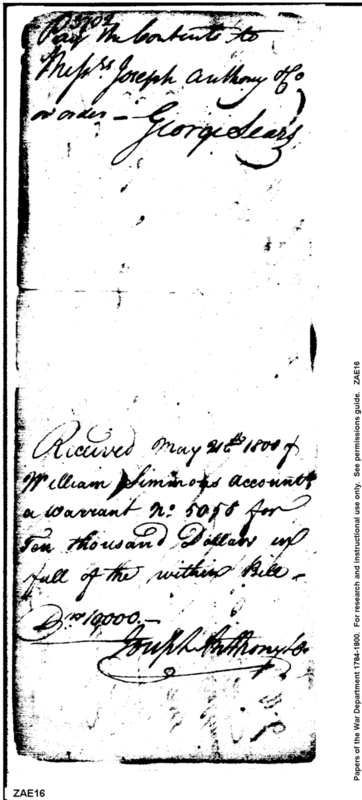 3702
Pay the Contents to
Messrs Joseph Anthony & Co
or order - George Sears
Received May 21st 1800 of
William Simmons Accountt
a warrant No. 5056 for
Ten thousand Dollars in
full of the within Bill -
Drs 10000.-
Joseph Anthony & Co
ZAE16
Papers of the War Department 1784-1800. For research and instructional use only. See permissions guide. ZAE16